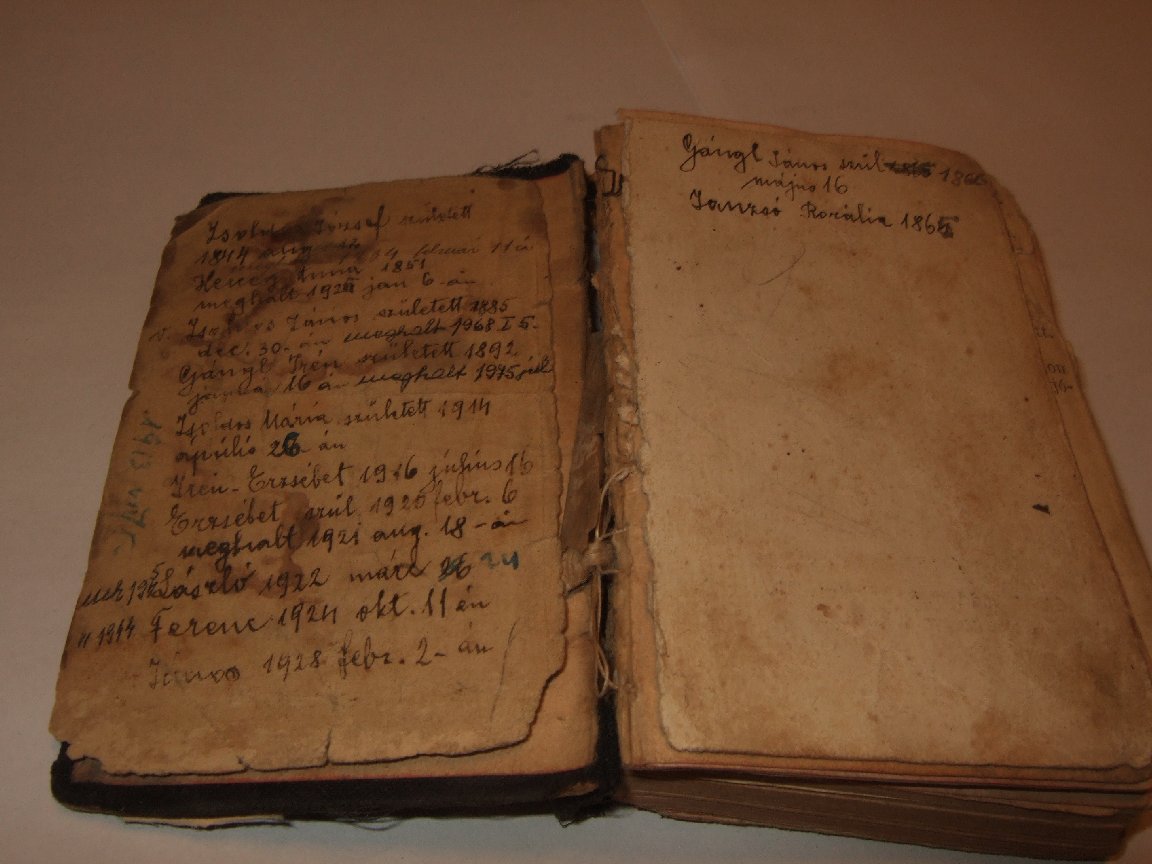 Zsoldos József született
1844 aug. 12
február 11 én
Herceg Anna 1851
meghalt 192 jan 6-án
v. Zsoldos János született 1885
dec. 30-án meghalt 1968 I 5.
Gángl Irén született 1892
január 16 án meghalt 1975 júl
Zsoldos Mária született 1914
április 26-án
Irén-Erzsébet 1916 június 16
Erzsébet szül. 1920 febr. 6
meghalt 1921 aug. 18-án
László 1922 márc 26 24
" 1944 Ferenc 1924 okt. 11 én
János 1928 febr. 2-án
1913
Gángl János szül 1865 1866
május 16
Janzsó Rozália 1865